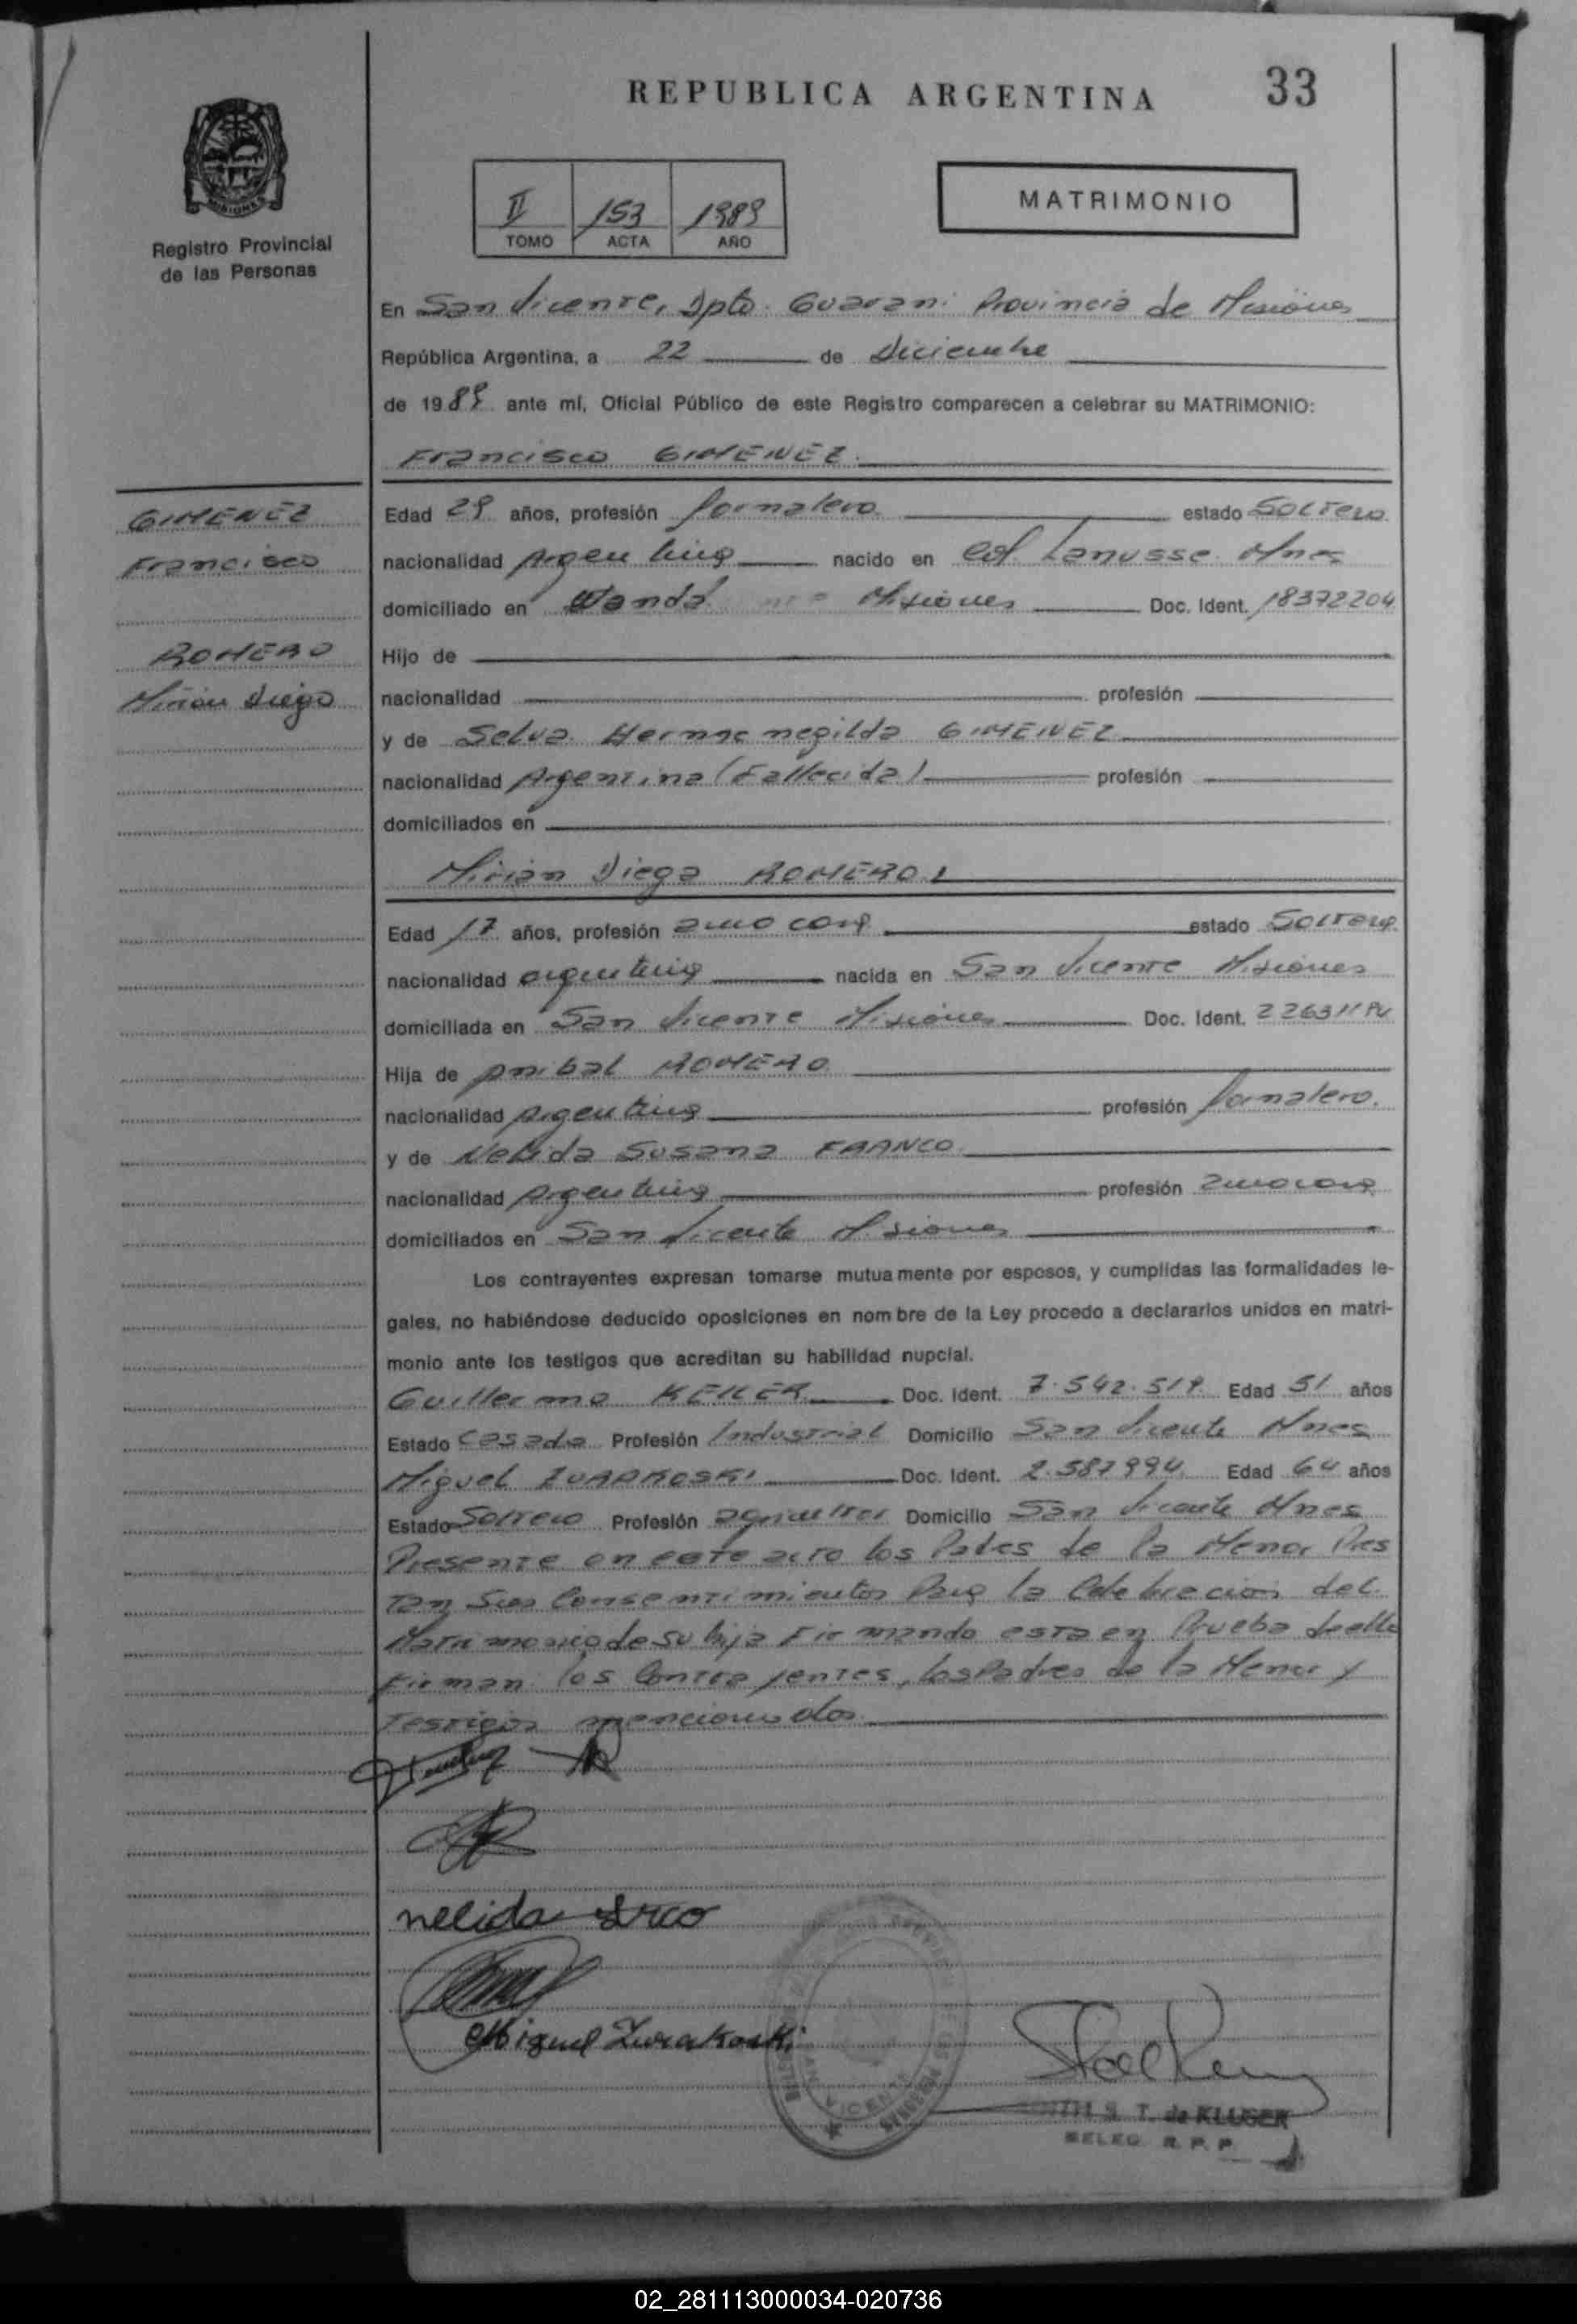 REPUBLICA ARGENTINA 33
MISIONES
Registro Provincial
de las Personas
II 153 1989
TOMO ACTA AÑO
MATRIMONIO
En San Vicente, Dpto. Guarani Provincia de Misiones
República Argentina, a 22 de Diciembre
de 1989 ante mí, Oficial Público de este Registro comparecen a celebrar su MATRIMONIO:
Francisco GIMENEZ
GIMENEZ
Francisco
ROMERO
Mirian Diega
Edad 29 años, profesión Jornalero estado Soltero
nacionalidad Argentina nacido en Col. Lanusse Mnes
domiciliado en Wanda Misiones Doc. Ident. 18372204
Hijo de
nacionalidad profesión
y de Selva Hermenegilda GIMENEZ
nacionalidad Argentina (Fallecida) profesión
domiciliados en
Mirian Diega ROMERO
Edad 17 años, profesión ama casa estado Soltera
nacionalidad argentina nacida en San Vicente Misiones
domiciliada en San Vicente Misiones Doc. Ident.
Hija de Anibal ROMERO
nacionalidad Argentina profesión Jornalero.
y de Nelida Susana FRANCO
nacionalidad Argentina profesión ama casa
domiciliados en San Vicente Misiones
Los contrayentes expresan tomarse mutuamente por esposos, y cumplidas las formalidades le-
gales, no habiéndose deducido oposiciones en nombre de la Ley procedo a declararlos unidos en matri-
monio ante los testigos que acreditan su habilidad nupcial.
Guillermo KELER Doc. Ident. 7.542.519 Edad 51 años
Estado Casado Profesión Industrial Domicilio San Vicente Mnes
Miguel ZURAKOSKI Doc. Ident. 2.587994 Edad 64 años
Estado Soltero Profesión agricultor Domicilio San Vicente Mnes
Presente en este acto los Padres de la Menor Pres
tan sus Consentimientos Para la Celebracion del
Matrimonio de su hija Firmando esta en Prueba de ello
Firman los Contrayentes, los Padres de la Menor y
Testigos mencionados
nelida
Miguel Zurakoski
S. T. de KLUGER
DELEG. R. P. P.
02_281113000034-020736